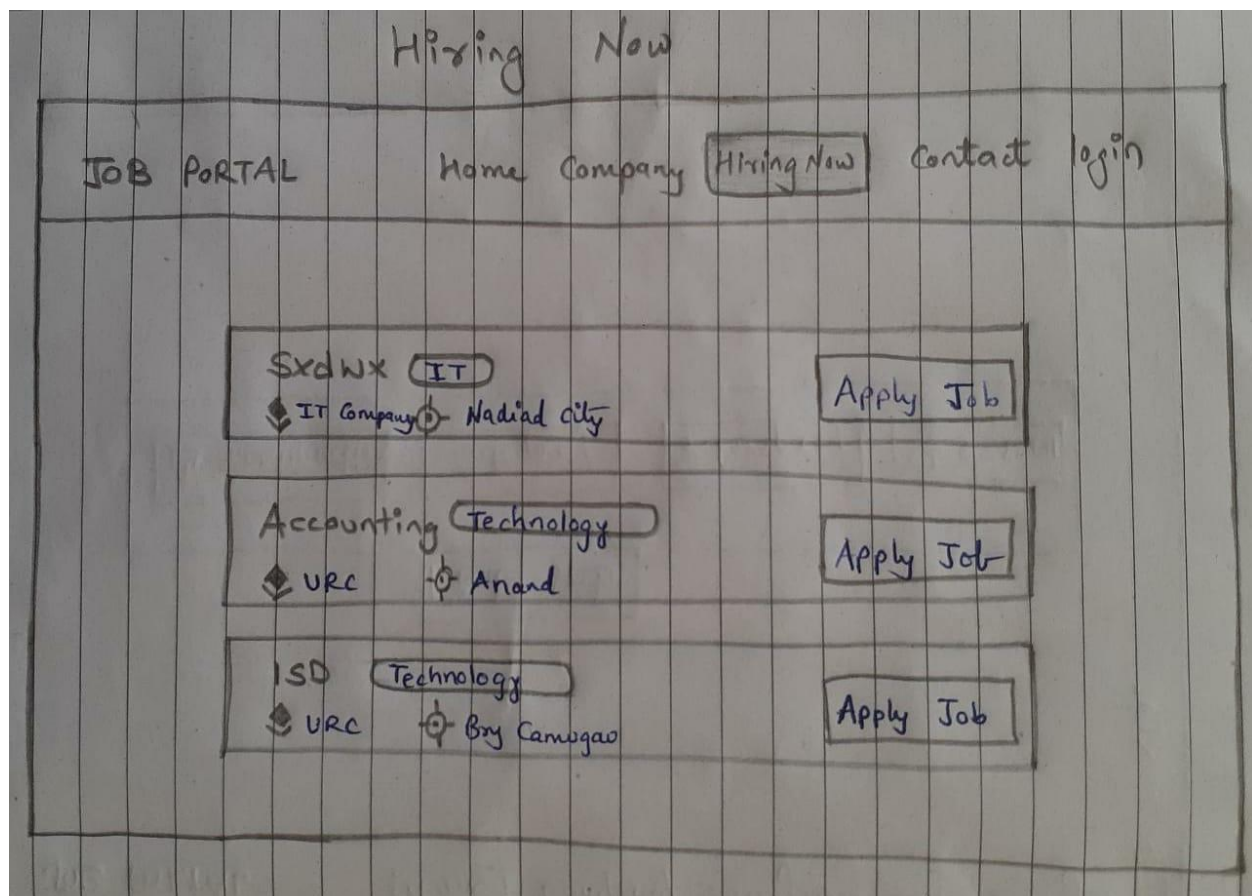 Hiring Now
JOB PORTAL Home Company Hiring Now Contact login
Sxdwx IT
IT Company Nadiad city
Apply Job
Accounting Technology
URC Anand
Apply Job
ISD Technology
URC Bry Camogao
Apply Job